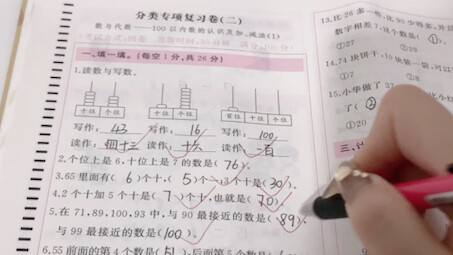 分类专项复习卷(二)
数与代数——100以内数的认识及加、减法(1)
一、填一填。(每空1分,共26分)
1.读数与写数。
十位 个位 十位 个位 百位 十位 个位
写作: 43 写作: 16 写作: 100
读作: 四十三 读作: 十六 读作: 一百
2.个位上是6,十位上是7的数是(76)。
3.65里面有(6)个十,(5)个一;3个十是(30)。
4.2个十加5个十是(7)个十,也就是(70)。
5.在71,89,100,93中,与90最接近的数是(89),
与99最接近的数是(100)。
6.55前面的第4个数是(51),后面第5个数是(
13.比26多一些,比
数字相差7,这个数是(
①27
②20
14.74块饼干,10块装一袋,可以
①7
②8
15.小华做了
了(②)
三、